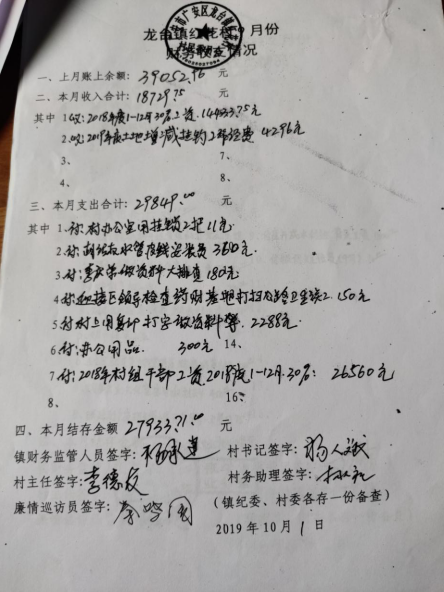 龙台镇红花村9月份
财务收支情况
一、上月账上余额:39052.96 元
二、本月收入合计:18729.75 元
其中 1、收:2018年度1-12月30名工资,14433.75元
2、收:2019年度土地增减挂钩工作经费 4296元
3、 7、
4、 8、
三、本月支出合计:29849.00 元
其中 1、付:村办公室用挂锁2把11元
2、付:水管接线安装员3600元
3、付:资料大排查180元
4、付:迎接区领导检查药材基地打扫 150元
5、付:村上用复印打字做资料等 2288元
6、付:办公用品 300元 14、
7、付:2018年村组干部工资2018年度1-12月.30名: 26560元
8、 16、
四、本月结存金额 27933.71 元
镇财务监管人员签字: 村书记签字:
村主任签字:李德 村务助理签字:
廉情巡访员签字: (镇纪委、村委各存一份备查)
2019 年 10 月 1 日